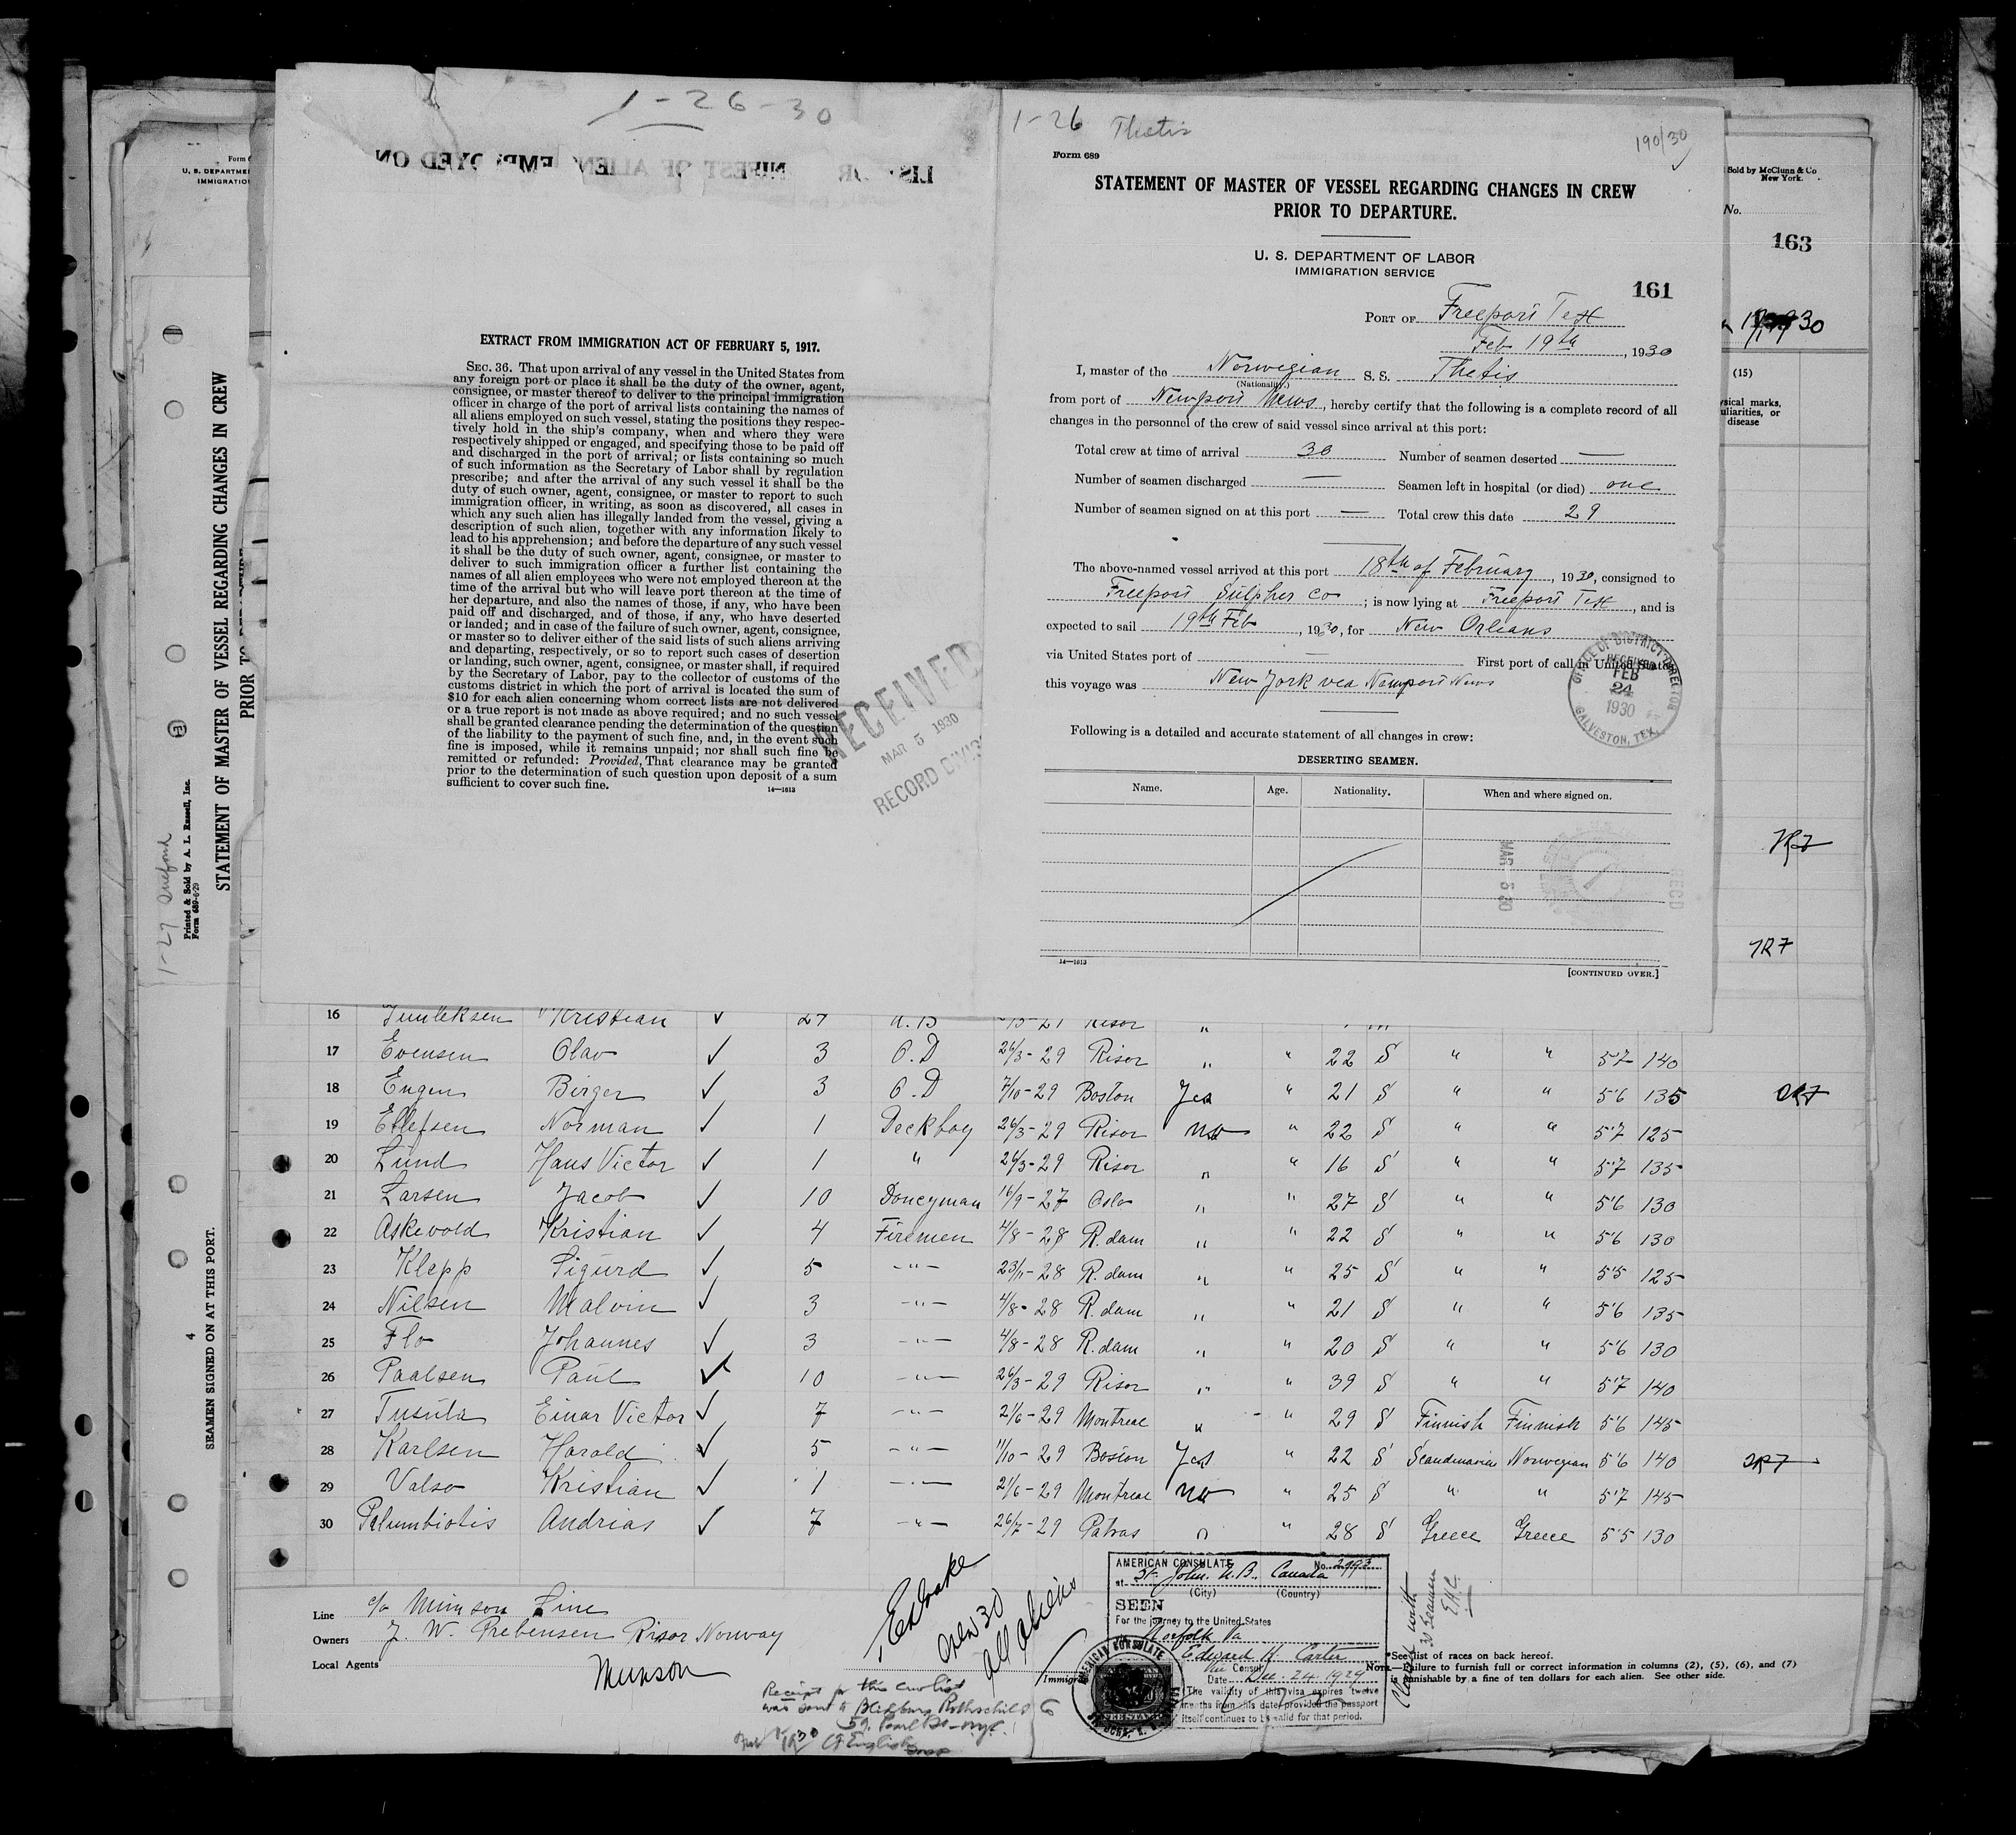 1-26-30
EXTRACT FROM IMMIGRATION ACT OF FEBRUARY 5, 1917.
SEC. 36. That upon arrival of any vessel in the United States from
any foreign port or place it shall be the duty of the owner, agent,
consignee, or master thereof to deliver to the principal immigration
officer in charge of the port of arrival lists containing the names of
all aliens employed on such vessel, stating the positions they respec-
tively hold in the ship's company, when and where they were
respectively shipped or engaged, and specifying those to be paid off
and discharged in the port of arrival; or lists containing so much
of such information as the Secretary of Labor shall by regulation
prescribe; and after the arrival of any such vessel it shall be the
duty of such owner, agent, consignee, or master to report to such
immigration officer, in writing, as soon as discovered, all cases in
which any such alien has illegally landed from the vessel, giving a
description of such alien, together with any information likely to
lead to his apprehension; and before the departure of any such vessel
it shall be the duty of such owner, agent, consignee, or master to
deliver to such immigration officer a further list containing the
names of all alien employees who were not employed thereon at the
time of the arrival but who will leave port thereon at the time of
her departure, and also the names of those, if any, who have been
paid off and discharged, and of those, if any, who have deserted
or landed; and in case of the failure of such owner, agent, consignee,
or master so to deliver either of the said lists of such aliens arriving
and departing, respectively, or so to report such cases of desertion
or landing, such owner, agent, consignee, or master shall, if required
by the Secretary of Labor, pay to the collector of customs of the
customs district in which the port of arrival is located the sum of
$10 for each alien concerning whom correct lists are not delivered
or a true report is not made as above required; and no such vessel
shall be granted clearance pending the determination of the question
of the liability to the payment of such fine, and, in the event such
fine is imposed, while it remains unpaid; nor shall such fine be
remitted or refunded: Provided, That clearance may be granted
prior to the determination of such question upon deposit of a sum
sufficient to cover such fine.
14—1613
RECEIVED
MAR 5 1930
RECORD DIVIS
1-26 Thetis
190/30
Form 689
STATEMENT OF MASTER OF VESSEL REGARDING CHANGES IN CREW
PRIOR TO DEPARTURE.
U. S. DEPARTMENT OF LABOR
IMMIGRATION SERVICE
161
PORT OF Freeport Tex
Feb 19th, 1930
I, master of the Norwegian S. S. Thetis
(Nationality)
from port of Newport News, hereby certify that the following is a complete record of all
changes in the personnel of the crew of said vessel since arrival at this port:
Total crew at time of arrival 30 Number of seamen deserted —
Number of seamen discharged — Seamen left in hospital (or died) one
Number of seamen signed on at this port — Total crew this date 29
The above-named vessel arrived at this port 18th of February, 1930, consigned to
Freeport Sulpher Co; is now lying at Freeport Tex, and is
expected to sail 19th Feb, 1930, for New Orleans
via United States port of — First port of call in United States
this voyage was New York via Newport News
OFFICE OF DISTRICT DIRECTOR
RECEIVED
FEB
24
1930
GALVESTON, TEX.
Following is a detailed and accurate statement of all changes in crew:
DESERTING SEAMEN.
Name. Age. Nationality. When and where signed on.
MAR 5 30
RECD
14—1613
[CONTINUED OVER.]
Form 6
U. S. DEPARTME
IMMIGRATIO
1-27
Printed & Sold by A. L. Russell, Inc.
Form 689-6-29
STATEMENT OF MASTER OF VESSEL REGARDING CHANGES IN CREW
PRIOR TO
4
SEAMEN SIGNED ON AT THIS PORT.
Sold by McClunn & Co
New York.
No.
163
30
(15)
sical marks,
uliarities, or
disease
16 Kristian ✓ 27 A.B Risor "
17 Evensen Olav ✓ 3 O.D 26/3-29 Risor " " 22 S " " 5'7 140
18 Engen Birger ✓ 3 O.D 7/10-29 Boston Yes " 21 S " " 5'6 135
19 Ellefsen Norman ✓ 1 Deckboy 26/3-29 Risor no " 22 S " " 5'7 125
20 Lund Hans Victor ✓ 1 " 26/3-29 Risor " " 16 S " " 5'7 135
21 Larsen Jacob ✓ 10 Donkeyman 16/9-27 Oslo " " 27 S " " 5'6 130
22 Askevold Kristian ✓ 4 Firemen 4/8-28 R.dam " " 22 S " " 5'6 130
23 Klepp Sigurd ✓ 5 -"- 23/11-28 R.dam " " 25 S " " 5'5 125
24 Nilsen Malvin ✓ 3 -"- 4/8-28 R.dam " " 21 S " " 5'6 135
25 Flo Johannes ✓ 3 -"- 4/8-28 R.dam " " 20 S " " 5'6 130
26 Paalsen Paul ✓ 10 -"- 26/3-29 Risor " " 39 S " " 5'7 140
27 Tusula Einar Victor ✓ 7 -"- 2/6-29 Montreal " " 29 S Finnish Finnish 5'6 145
28 Karlsen Harald ✓ 5 -"- 11/10-29 Boston Yes " 22 S Scandinavian Norwegian 5'6 140
29 Valso Kristian ✓ 1 -"- 2/6-29 Montreal no " 25 S " " 5'7 145
30 Palumbiotis Andrias ✓ 7 -"- 26/7-29 Patras " " 28 S Greece Greece 5'5 130
Line c/o Munson Line
Owners J. W. Prebensen Risor Norway
Local Agents Munson
crew 30
all aliens
Immigr
Receipt for this crew list
was sent to Rothschild
59 Pearl St-nyc.
AMERICAN CONSULATE No. 2993
at St. John. N.B., Canada
(City) (Country)
SEEN
For the journey to the United States
Norfolk Va
Edward H. Carter
Vice Consul
Date Dec. 24. 1929
The validity of this visa expires twelve
months from this date, provided the passport
itself continues to be valid for that period.
AMERICAN CONSULATE
FEE STAMP
30 Seamen
*See list of races on back hereof.
NOTE.—Failure to furnish full or correct information in columns (2), (5), (6), and (7)
is punishable by a fine of ten dollars for each alien. See other side.